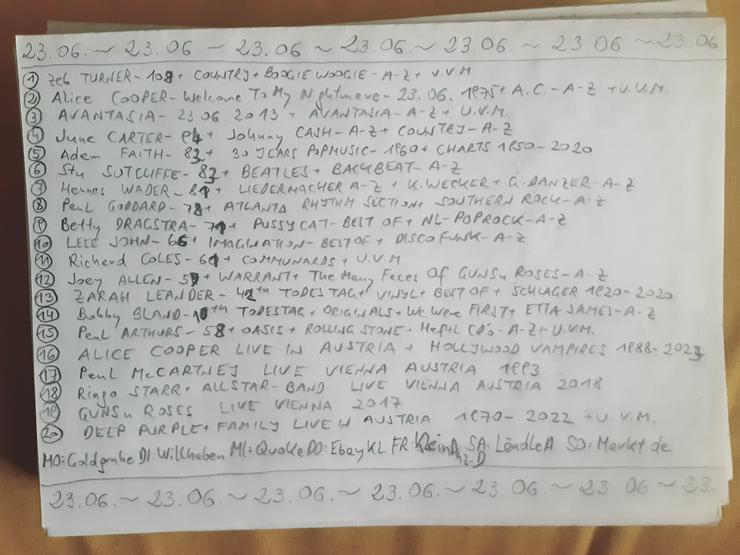 23.06. ~ 23.06. ~ 23.06 ~ 23.06. ~ 23.06. ~ 23.06. ~ 23.06
① Zeb TURNER - 108 + COUNTRY + BOOGIE WOOGIE - A-Z + U.V.M
② Alice COOPER - Welcome To My Nightmare - 23.06. 1975 + A.C. - A-Z + U.V.M.
③ AVANTASIA - 23.06.2013 + AVANTASIA - A-Z + U.V.M.
④ June CARTER - 94 + Johnny CASH - A-Z + COUNTRY - A-Z
⑤ Adam FAITH - 83 + 30 YEARS POPMUSIC - 1960 + CHARTS 1950-2020
⑥ Stu SUTCLIFFE - 83 + BEATLES + BACKBEAT - A-Z
⑦ Hannes WADER - 81 + LIEDERMACHER A-Z + K. WECKER + G. DANZER - A-Z
⑧ Paul GODDARD - 78 + ATLANTA RHYTHM SECTION + SOUTHERN ROCK - A-Z
⑨ Betty DRAGSTRA - 71 + PUSSYCAT - BEST OF + NL-POPROCK - A-Z
⑩ LEEE JOHN - 66 + IMAGINATION - BEST OF + DISCO FUNK - A-Z
⑪ Richard COLES - 61 + COMMUNARDS + U.V.M
⑫ Joey ALLEN - 59 + WARRANT + The Many Faces Of GUNS n ROSES - A-Z
⑬ ZARAH LEANDER - 42th TODESTAG + VINYL + BEST OF + SCHLAGER 1920-2020
⑭ Bobby BLAND - 10th TODESTAG + ORIGINALS + We Were FIRST + ETTA JAMES - A-Z
⑮ Paul ARTHURS - 58 + OASIS + ROLLING STONE - Heftl CD's - A-Z + U.V.M.
⑯ ALICE COOPER LIVE IN AUSTRIA + HOLLYWOOD VAMPIRES 1988-2023
⑰ Paul McCARTNEY LIVE VIENNA AUSTRIA 1993
⑱ Ringo STARR + ALLSTAR-BAND LIVE VIENNA AUSTRIA 2018
⑲ GUNS n ROSES LIVE VIENNA 2017
⑳ DEEP PURPLE + FAMILY LIVE IN AUSTRIA 1970-2022 + U.V.M.
MO: Goldgrube DI: Willhaben MI: Quoka DO: Ebay KL FR: KleinAnz D SA: Ländle A SO: Markt de
23.06. ~ 23.06. ~ 23.06. ~ 23.06. ~ 23.06 ~ 23.06 ~ 23.